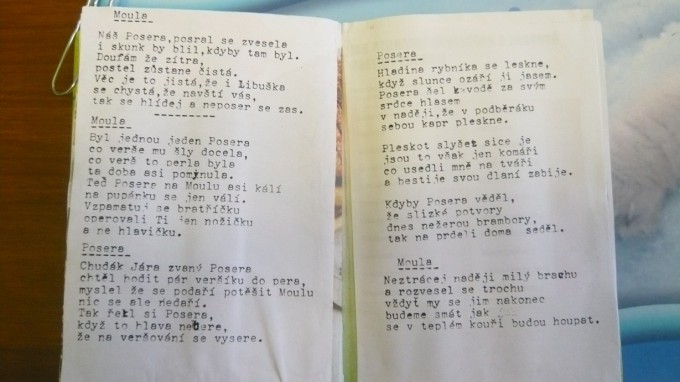 Moula
Náš Posera,posral se zvesela
i skunk by blil,kdyby tam byl.
Doufám že zítra,
postel zůstane čistá.
Věc je to jistá,že i Libuška
se chystá,že navští vás,
tak se hlídej a neposer se zas.
Moula
Byl jednou jeden Posera
co verše mu šly docela,
co verš to perla byla
ta doba asi pominula.
Teď Posere na Moulu asi kálí
na pupánku se jen válí.
Vzpamatuj se bratříčku
operovali Ti jen nožičku
a ne hlavičku.
Posera
Chuďák Jára zvaný Posera
chtěl hodit pár veršíku do pera,
myslel že se podaří potěšit Moulu
nic se ale nedaří.
Tak řekl si Posera,
když to hlava nebere,
že na veršování se vysere.
Posera
Hladina rybníka se leskne,
když slunce ozáří ji jasem.
Posera šel k vodě za svým
srdce hlasem
v naději,že v podběráku
sebou kapr pleskne.
Pleskot slyšet sice je
jsou to však jen komáři
co usedli mně na tváři
a bestije svou dlaní zabije.
Kdyby Posera věděl,
že slizké potvory
dnes nežerou brambory,
tak na prdeli doma seděl.
Moula
Neztrácej naději milý brachu
a rozvesel se trochu
vždyť my se jim nakonec
budeme smát jak
se v teplém kouři budou houpat.